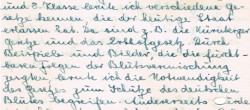 und 8. Klasse lernte ich verschiedene Ge-
setze kennen, die der heutige Staat
erlassen hat. Es sind z. B. die Nürnberger
Gesetze und das Erbhofgesetz. Durch
Beispiele und Bilder, die die furcht-
baren Folgen der Blutsvermischung
zeigten, lernte ich die Notwendigkeit
des Gesetzes zum Schutze des deutschen
Blutes begreifen. Andererseits